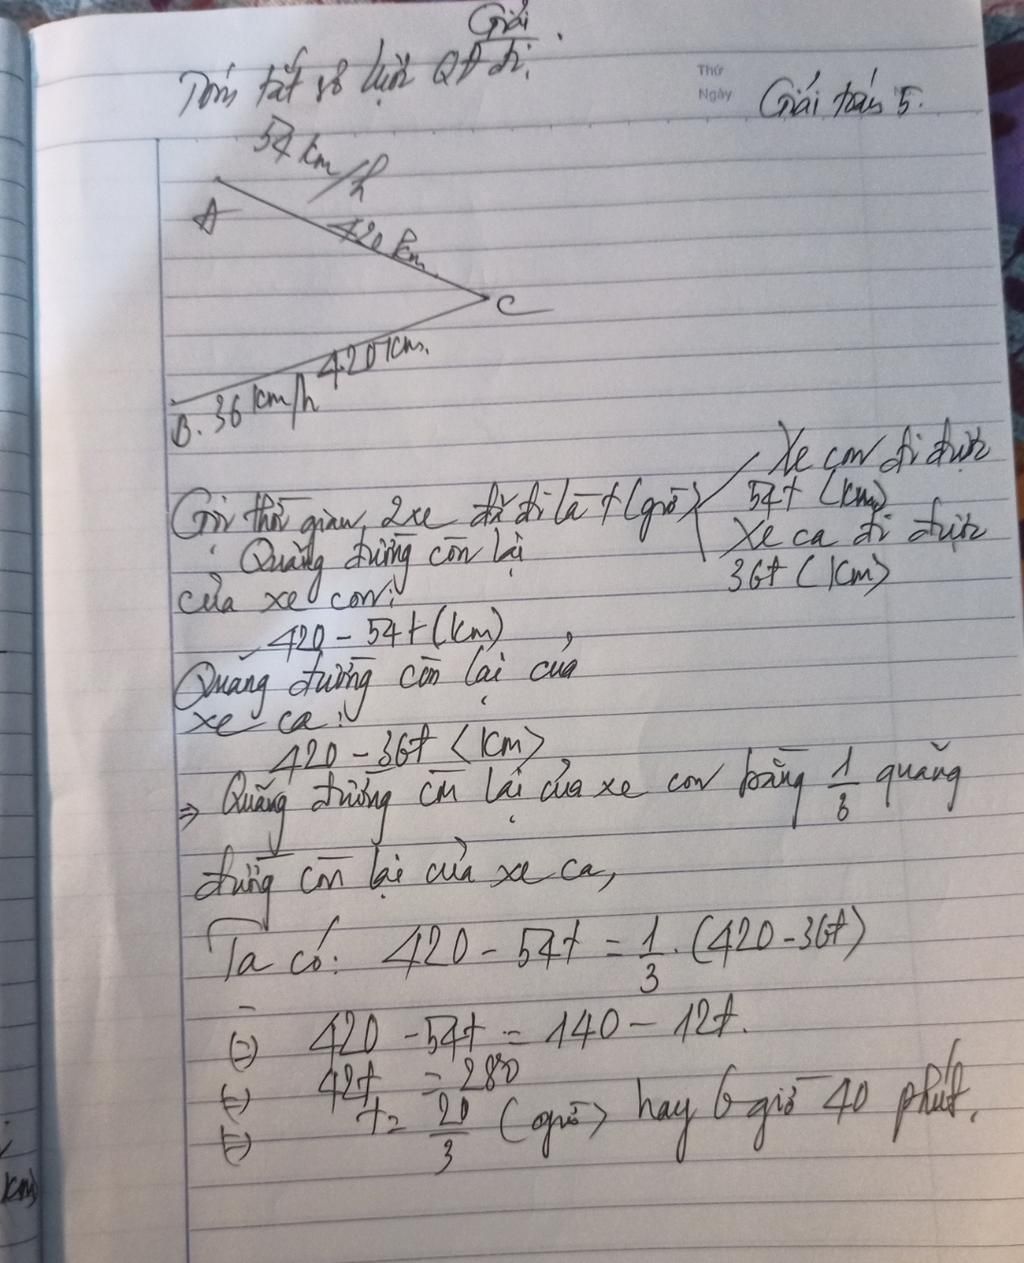 Giải
Tóm tắt sơ lược QĐ đi.
Thứ
Ngày
Giải toán 5.
54 km/h
A
420 km
C
420 km.
B. 36 km/h
Gọi thời gian 2 xe đã đi là t (giờ)
Xe con đi được
54t (km)
Xe ca đi được
36t (km)
Quãng đường còn lại
của xe con:
420 - 54t (km)
Quãng đường còn lại của
xe ca:
420 - 36t (km)
⇒ Quãng đường còn lại của xe con bằng 1/3 quãng
đường còn lại của xe ca,
Ta có: 420 - 54t = 1/3 . (420 - 36t)
(=) 420 - 54t = 140 - 12t.
(=) 42t = 280
(=) t = 20/3 (giờ) hay 6 giờ 40 phút.
km)